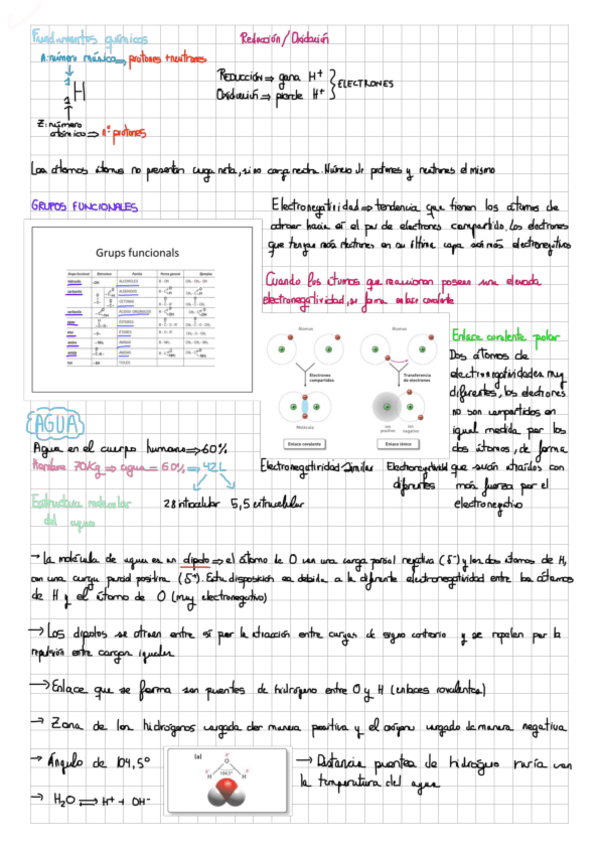 Fundamentos químicos
Reducción/Oxidación
A: número másico → protones + neutrones
H
Z: número
atómico ⇒ nº protones
Reducción ⇒ gana H⁺
Oxidación ⇒ pierde H⁺
ELECTRONES
Los átomos no presentan carga neta, si no carga neutra. Número de protones y neutrones el mismo
GRUPOS FUNCIONALES
Grups funcionals
Grupo funcional Estructura Familia Forma general Ejemplos
ALCOHOLES
ALDEHIDOS
CETONAS
ÁCIDOS ORGÁNICOS
ÉSTERES
ÉTERES
AMINAS
AMIDAS
TIOLES
Electronegatividad ⇒ tendencia que tienen los átomos de
atraer hacia sí el par de electrones compartido. Los electrones
que tengan más electrones en su última capa son más electronegativos
Cuando los átomos que reaccionan poseen una elevada
electronegatividad, se forma enlace covalente
Átomos
Átomos
Electrones
compartidos
Transferencia
de electrones
Molécula
Ion
positivo
Ion
negativo
Enlace covalente
Enlace iónico
Electronegatividad Similar
Electronegatividad
diferentes
Enlace covalente polar
Dos átomos de
electronegatividades muy
diferentes, los electrones
no son compartidos en
igual medida por los
dos átomos, de forma
que sean atraídos con
más fuerza por el
electronegativo
AGUA
Agua en el cuerpo humano ⇒ 60%
Hombre 70Kg ⇒ agua = 60% ⇒ 42L
28 intracelular 5,5 extracelular
Estructura molecular
del agua
→ La molécula de agua es un dipolo ⇒ el átomo de O con una carga parcial negativa (δ⁻) y los dos átomos de H,
con una carga parcial positiva (δ⁺). Esta disposición es debida a la diferente electronegatividad entre los átomos
de H y el átomo de O (muy electronegativo)
→ Los dipolos se atraen entre sí por la atracción entre cargas de signo contrario y se repelen por la
repulsión entre cargas iguales
→ Enlace que se forma son puentes de hidrógeno entre O y H (enlaces covalentes)
→ Zona de los hidrógenos cargada de manera positiva y el oxígeno cargado de manera negativa
→ Ángulo de 104,5°
(a)
O
H H
104,5°
→ Distancia puentes de hidrógeno varía con
la temperatura del agua
→ H₂O ⇌ H⁺ + OH⁻